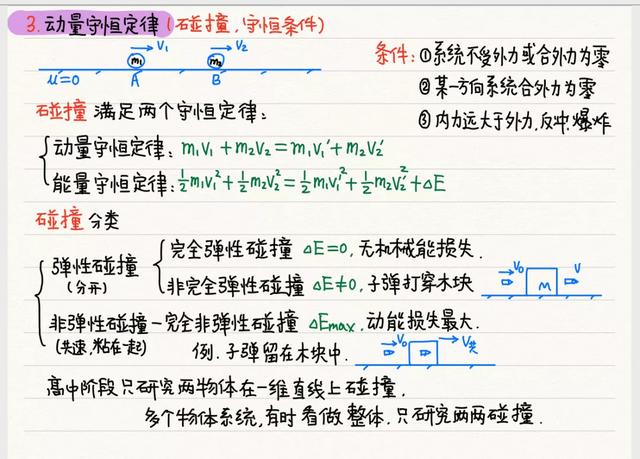 3. 动量守恒定律(碰撞,守恒条件)
V₁ V₂
m₁ m₂
μ=0 A B
条件: ①系统不受外力或合外力为零
②某一方向系统合外力为零
③内力远大于外力,反冲,爆炸
碰撞 满足两个守恒定律:
动量守恒定律: m₁V₁+m₂V₂=m₁V₁′+m₂V₂′
能量守恒定律: ½m₁V₁²+½m₂V₂²=½m₁V₁′²+½m₂V₂′²+ΔE
碰撞 分类
弹性碰撞
(分开)
完全弹性碰撞 ΔE=0, 无机械能损失.
非完全弹性碰撞 ΔE≠0, 子弹打穿木块
V₀ M V
非弹性碰撞-完全非弹性碰撞 ΔEmax, 动能损失最大.
(共速,粘在一起)
例. 子弹留在木块中.
V₀ V共
高中阶段只研究两物体在一维直线上碰撞.
多个物体系统,有时看做整体.只研究两两碰撞.